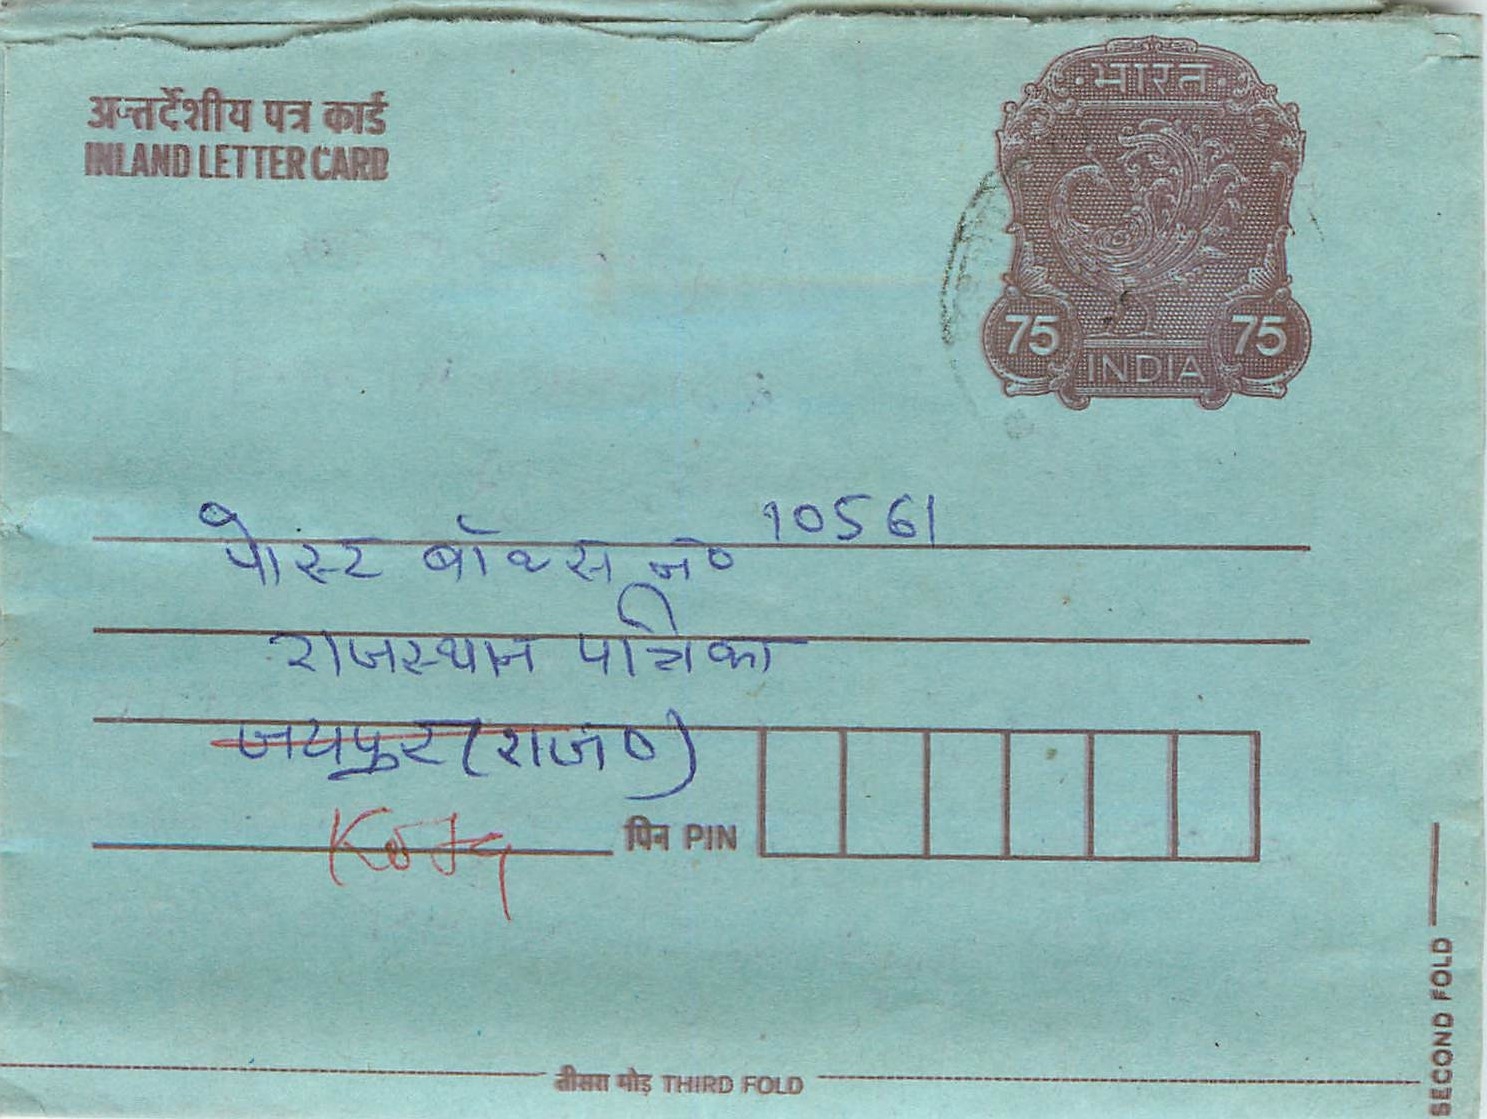 अन्तर्देशीय पत्र कार्ड
INLAND LETTER CARD
भारत
75 75
INDIA
पोस्ट बॉक्स न० 10561
राजस्थान पत्रिका
जयपुर (राज०)
Kota
पिन PIN
तीसरा मोड़ THIRD FOLD
SECOND FOLD